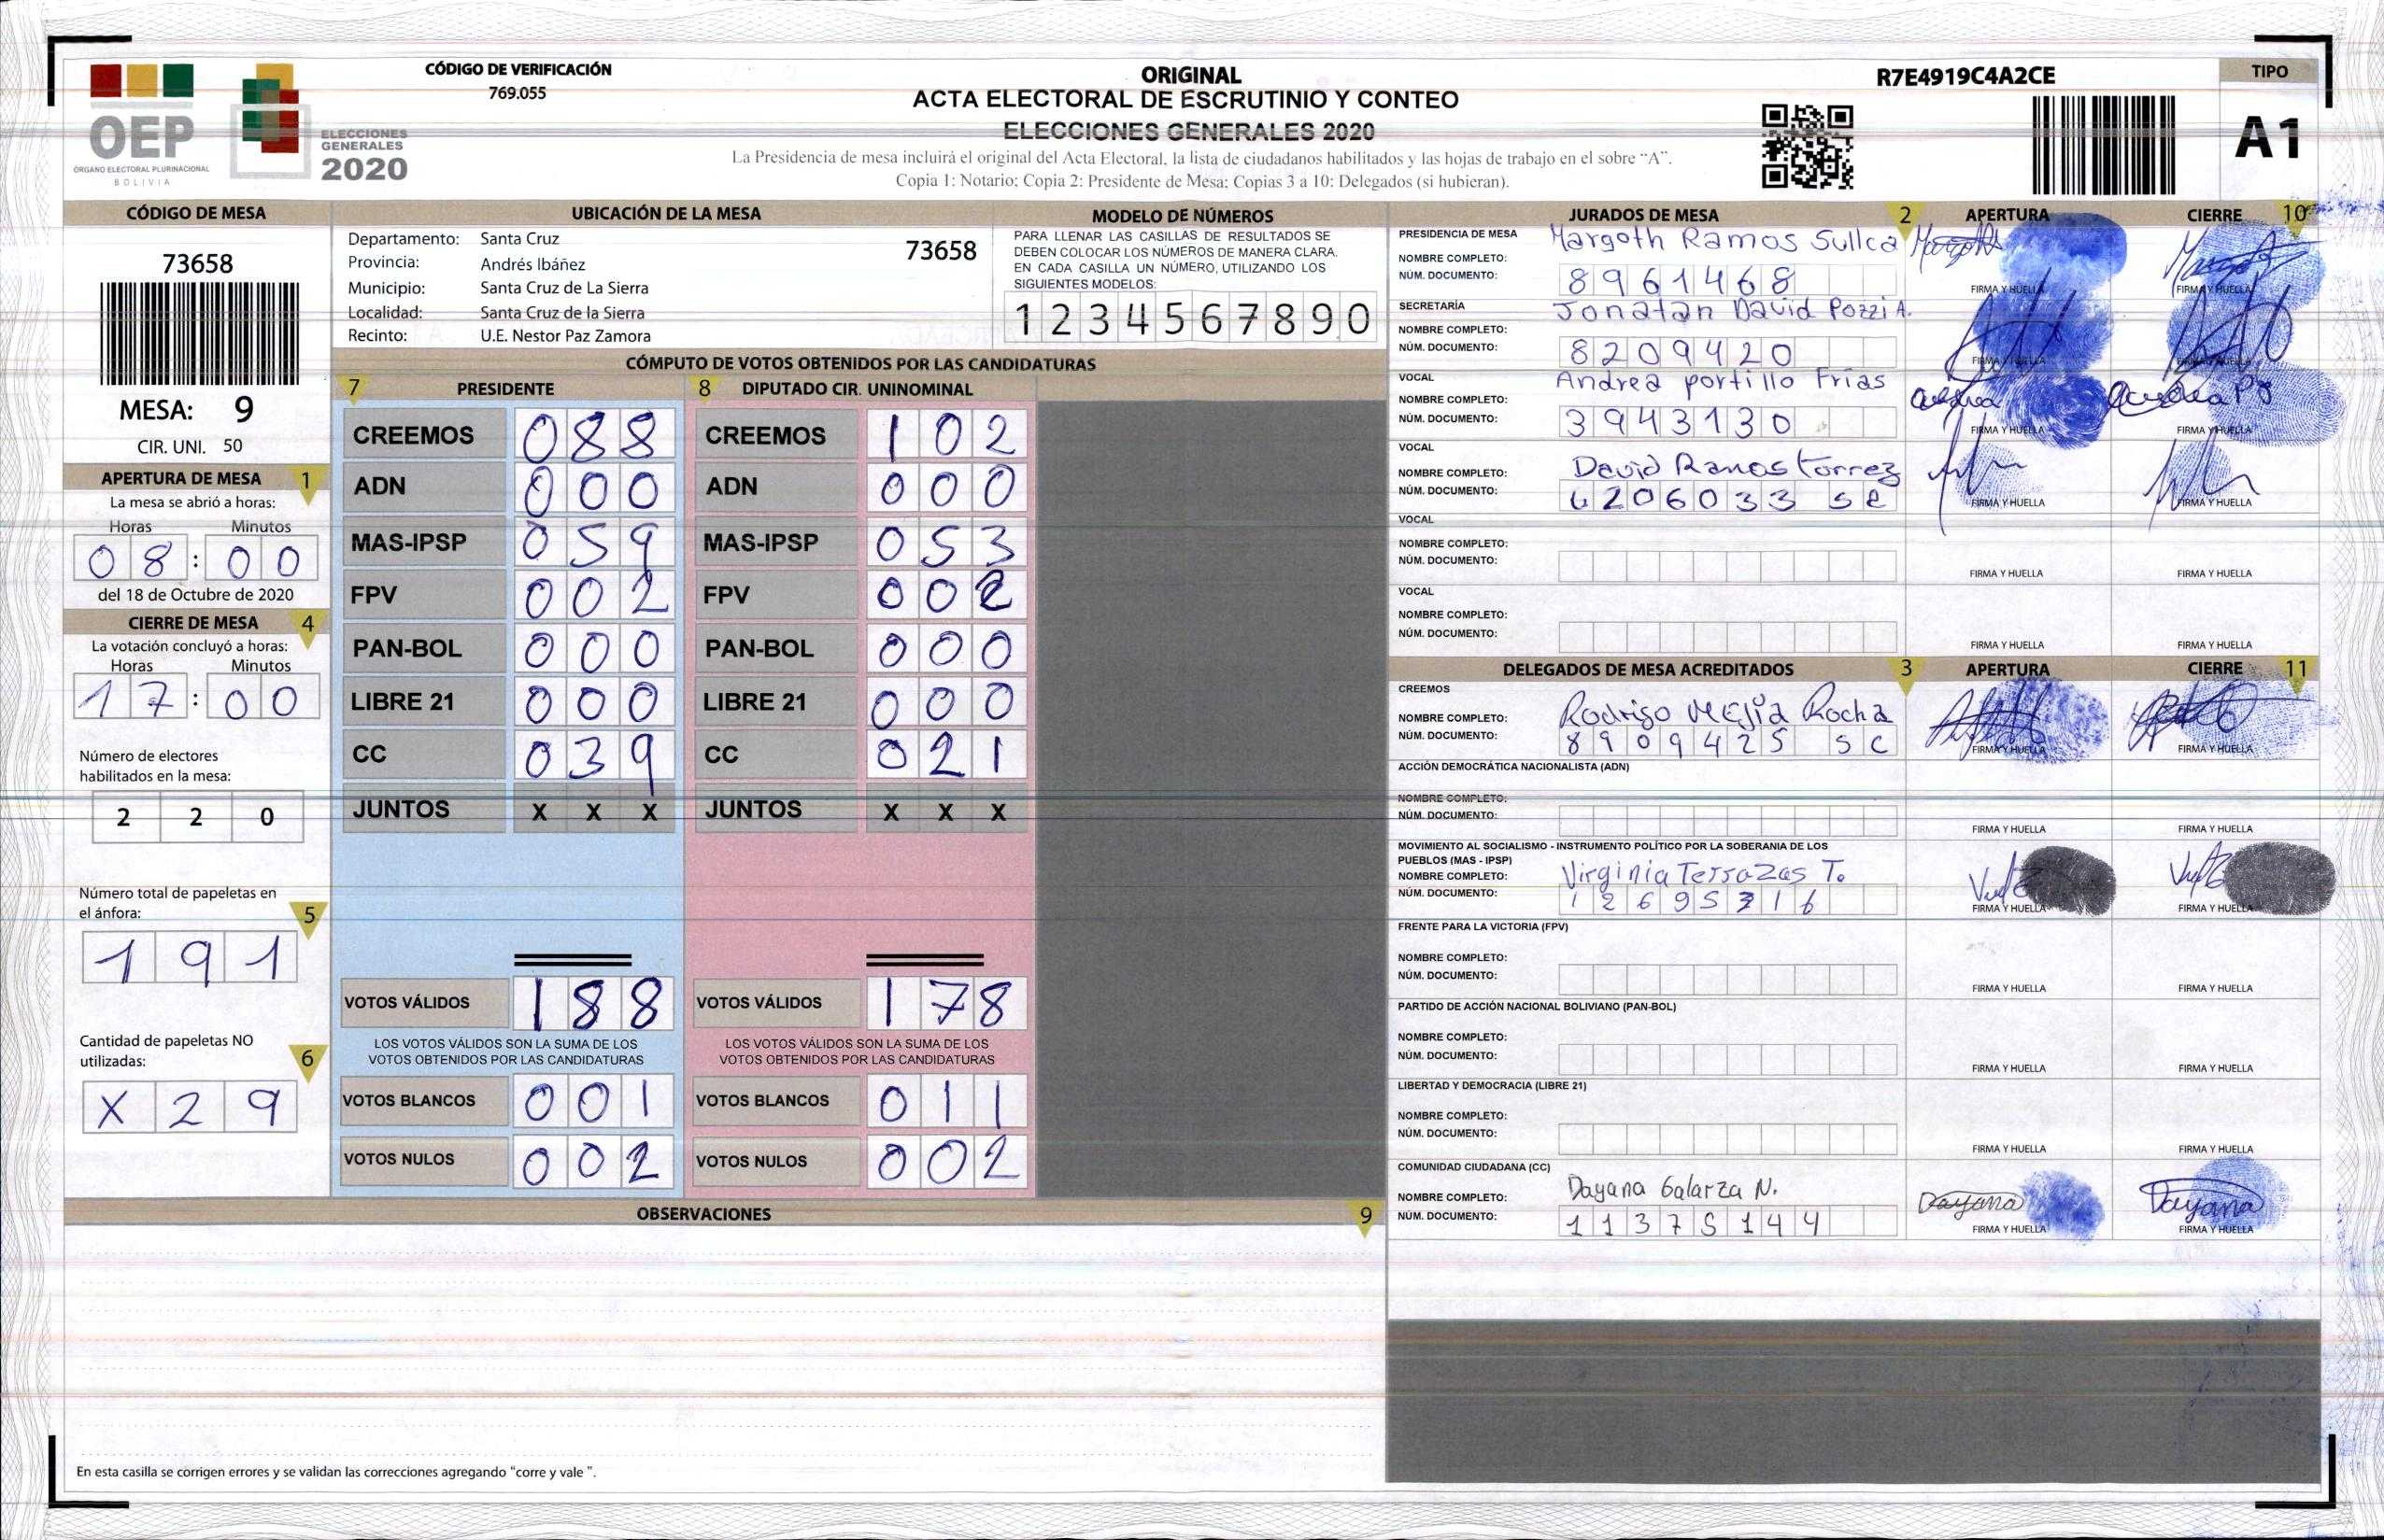 CÓDIGO DE VERIFICACIÓN
769.055
ORIGINAL
ACTA ELECTORAL DE ESCRUTINIO Y CONTEO
ELECCIONES GENERALES 2020
La Presidencia de mesa incluirá el original del Acta Electoral, la lista de ciudadanos habilitados y las hojas de trabajo en el sobre "A".
Copia 1: Notario; Copia 2: Presidente de Mesa; Copias 3 a 10: Delegados (si hubieran).
R7E4919C4A2CE
TIPO
A1
OEP
ÓRGANO ELECTORAL PLURINACIONAL
BOLIVIA
ELECCIONES
GENERALES
2020
CÓDIGO DE MESA
73658
MESA: 9
CIR. UNI. 50
APERTURA DE MESA 1
La mesa se abrió a horas:
Horas Minutos
08 : 00
del 18 de Octubre de 2020
CIERRE DE MESA 4
La votación concluyó a horas:
Horas Minutos
17 : 00
Número de electores
habilitados en la mesa:
2 2 0
Número total de papeletas en
el ánfora: 5
1 9 1
Cantidad de papeletas NO
utilizadas: 6
X 2 9
UBICACIÓN DE LA MESA
Departamento: Santa Cruz 73658
Provincia: Andrés Ibáñez
Municipio: Santa Cruz de La Sierra
Localidad: Santa Cruz de la Sierra
Recinto: U.E. Nestor Paz Zamora
MODELO DE NÚMEROS
PARA LLENAR LAS CASILLAS DE RESULTADOS SE
DEBEN COLOCAR LOS NÚMEROS DE MANERA CLARA.
EN CADA CASILLA UN NÚMERO, UTILIZANDO LOS
SIGUIENTES MODELOS:
1 2 3 4 5 6 7 8 9 0
CÓMPUTO DE VOTOS OBTENIDOS POR LAS CANDIDATURAS
7 PRESIDENTE 8 DIPUTADO CIR. UNINOMINAL
CREEMOS 0 8 8 CREEMOS 1 0 2
ADN 0 0 0 ADN 0 0 0
MAS-IPSP 0 5 9 MAS-IPSP 0 5 3
FPV 0 0 2 FPV 0 0 2
PAN-BOL 0 0 0 PAN-BOL 0 0 0
LIBRE 21 0 0 0 LIBRE 21 0 0 0
CC 0 3 9 CC 0 2 1
JUNTOS X X X JUNTOS X X X
VOTOS VÁLIDOS 1 8 8 VOTOS VÁLIDOS 1 7 8
LOS VOTOS VÁLIDOS SON LA SUMA DE LOS LOS VOTOS VÁLIDOS SON LA SUMA DE LOS
VOTOS OBTENIDOS POR LAS CANDIDATURAS VOTOS OBTENIDOS POR LAS CANDIDATURAS
VOTOS BLANCOS 0 0 1 VOTOS BLANCOS 0 1 1
VOTOS NULOS 0 0 2 VOTOS NULOS 0 0 2
OBSERVACIONES 9
En esta casilla se corrigen errores y se validan las correcciones agregando "corre y vale ".
JURADOS DE MESA 2 APERTURA CIERRE 10
PRESIDENCIA DE MESA Margoth Ramos Sullca
NOMBRE COMPLETO:
NÚM. DOCUMENTO: 8961468 FIRMA Y HUELLA FIRMA Y HUELLA
SECRETARÍA Jonatan David Pozzi A.
NOMBRE COMPLETO:
NÚM. DOCUMENTO: 8209420 FIRMA Y HUELLA FIRMA Y HUELLA
VOCAL Andrea portillo Frias
NOMBRE COMPLETO:
NÚM. DOCUMENTO: 3943130 FIRMA Y HUELLA FIRMA Y HUELLA
VOCAL
NOMBRE COMPLETO: David Ramos Torrez
NÚM. DOCUMENTO: 6206033 SC FIRMA Y HUELLA FIRMA Y HUELLA
VOCAL
NOMBRE COMPLETO:
NÚM. DOCUMENTO: FIRMA Y HUELLA FIRMA Y HUELLA
VOCAL
NOMBRE COMPLETO:
NÚM. DOCUMENTO: FIRMA Y HUELLA FIRMA Y HUELLA
DELEGADOS DE MESA ACREDITADOS 3 APERTURA CIERRE 11
CREEMOS
NOMBRE COMPLETO: Rodrigo Mejia Rocha
NÚM. DOCUMENTO: 8909425 SC FIRMA Y HUELLA FIRMA Y HUELLA
ACCIÓN DEMOCRÁTICA NACIONALISTA (ADN)
NOMBRE COMPLETO:
NÚM. DOCUMENTO: FIRMA Y HUELLA FIRMA Y HUELLA
MOVIMIENTO AL SOCIALISMO - INSTRUMENTO POLÍTICO POR LA SOBERANIA DE LOS
PUEBLOS (MAS - IPSP)
NOMBRE COMPLETO: Virginia Terrazas T.
NÚM. DOCUMENTO: FIRMA Y HUELLA FIRMA Y HUELLA
FRENTE PARA LA VICTORIA (FPV)
NOMBRE COMPLETO:
NÚM. DOCUMENTO: FIRMA Y HUELLA FIRMA Y HUELLA
PARTIDO DE ACCIÓN NACIONAL BOLIVIANO (PAN-BOL)
NOMBRE COMPLETO:
NÚM. DOCUMENTO: FIRMA Y HUELLA FIRMA Y HUELLA
LIBERTAD Y DEMOCRACIA (LIBRE 21)
NOMBRE COMPLETO:
NÚM. DOCUMENTO: FIRMA Y HUELLA FIRMA Y HUELLA
COMUNIDAD CIUDADANA (CC)
NOMBRE COMPLETO: Dayana Galarza N. Dayana Dayana
NÚM. DOCUMENTO: 11375144 FIRMA Y HUELLA FIRMA Y HUELLA